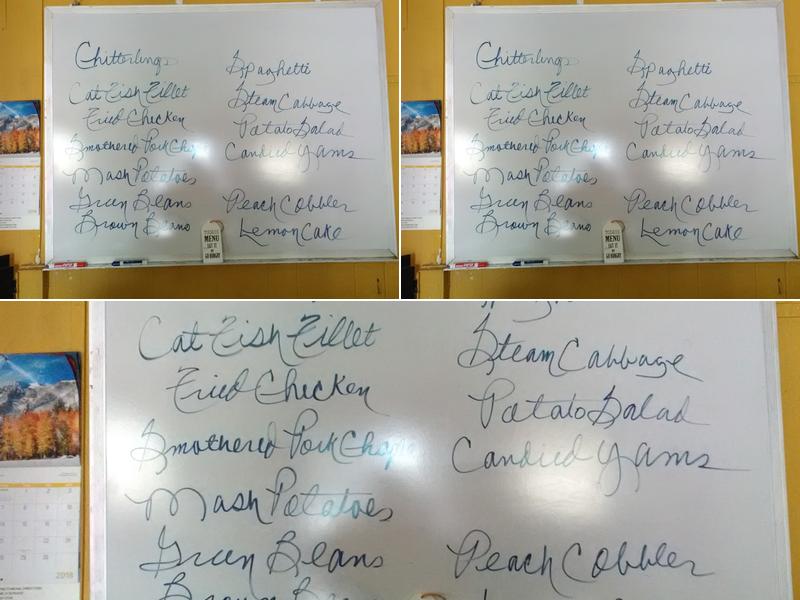 Chitterlings
Cat Fish Fillet
Fried Chicken
Smothered Pork Chops
Mash Potatoes
Green Beans
Brown Beans
Spaghetti
Steam Cabbage
Potato Salad
Candied Yams
Peach Cobbler
Lemon Cake
MENU
EAT IT
OR
GO HUNGRY
Chitterlings
Cat Fish Fillet
Fried Chicken
Smothered Pork Chops
Mash Potatoes
Green Beans
Brown Beans
Spaghetti
Steam Cabbage
Potato Salad
Candied Yams
Peach Cobbler
Lemon Cake
MENU
EAT IT
OR
GO HUNGRY
Cat Fish Fillet
Fried Chicken
Smothered Pork Chops
Mash Potatoes
Green Beans
Brown Beans
Steam Cabbage
Potato Salad
Candied Yams
Peach Cobbler
2016